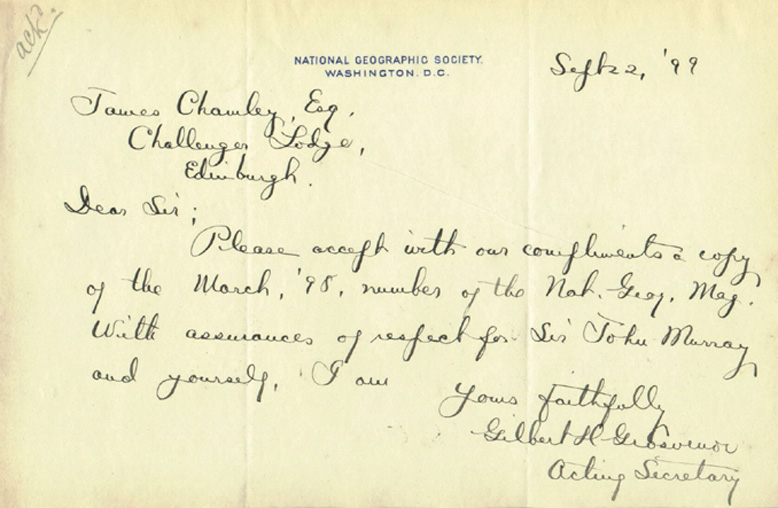 ack?
NATIONAL GEOGRAPHIC SOCIETY.
WASHINGTON. D.C.
Sept 22, '99
James Chumley, Esq.
Challenger Lodge,
Edinburgh.
Dear Sir;
Please accept with our compliments a copy
of the March, '98, number of the Nat. Geog. Mag.
With assurances of respect for Sir John Murray
and yourself, I am
Yours faithfully
Gilbert H Grosvenor
Acting Secretary